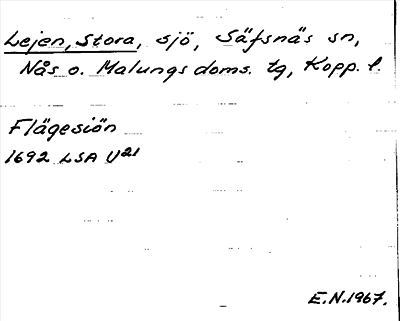 Lejen, Stora, sjö, Säfsnäs sn,
Nås o. Malungs doms. tg, Kopp. l.
Flägesiön
1692 LSA U21
E.N.1967.